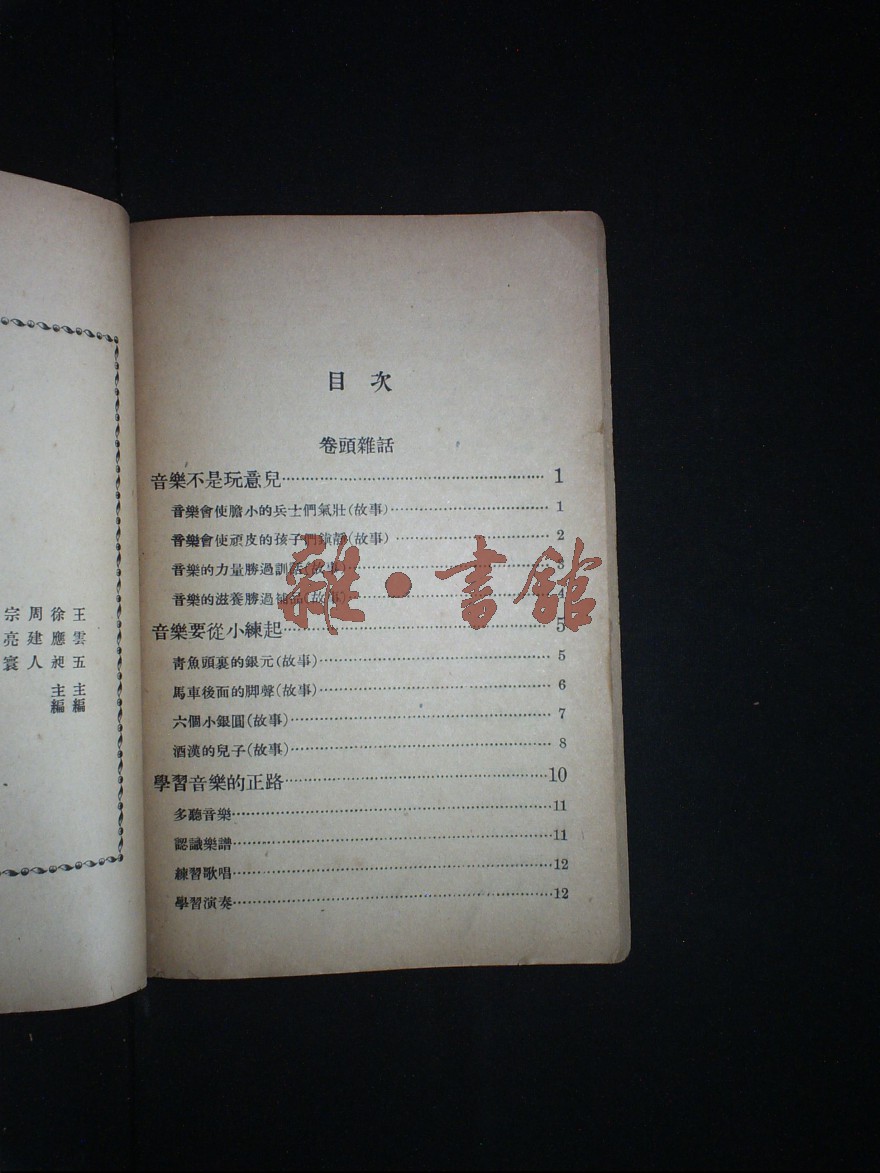 目次
卷頭雜話
音樂不是玩意兒 1
音樂會使膽小的兵士們氣壯(故事) 1
音樂會使頑皮的孩子們鎮靜(故事) 2
音樂的力量勝過訓話(故事) 3
音樂的滋養勝過補品(故事) 4
音樂要從小練起 5
青魚頭裏的銀元(故事) 5
馬車後面的脚聲(故事) 6
六個小銀圓(故事) 7
酒漢的兒子(故事) 8
學習音樂的正路 10
多聽音樂 11
認識樂譜 11
練習歌唱 12
學習演奏 12
王雲五 主編
徐應昶 主編
周建人
宗亮寰
雜·書館